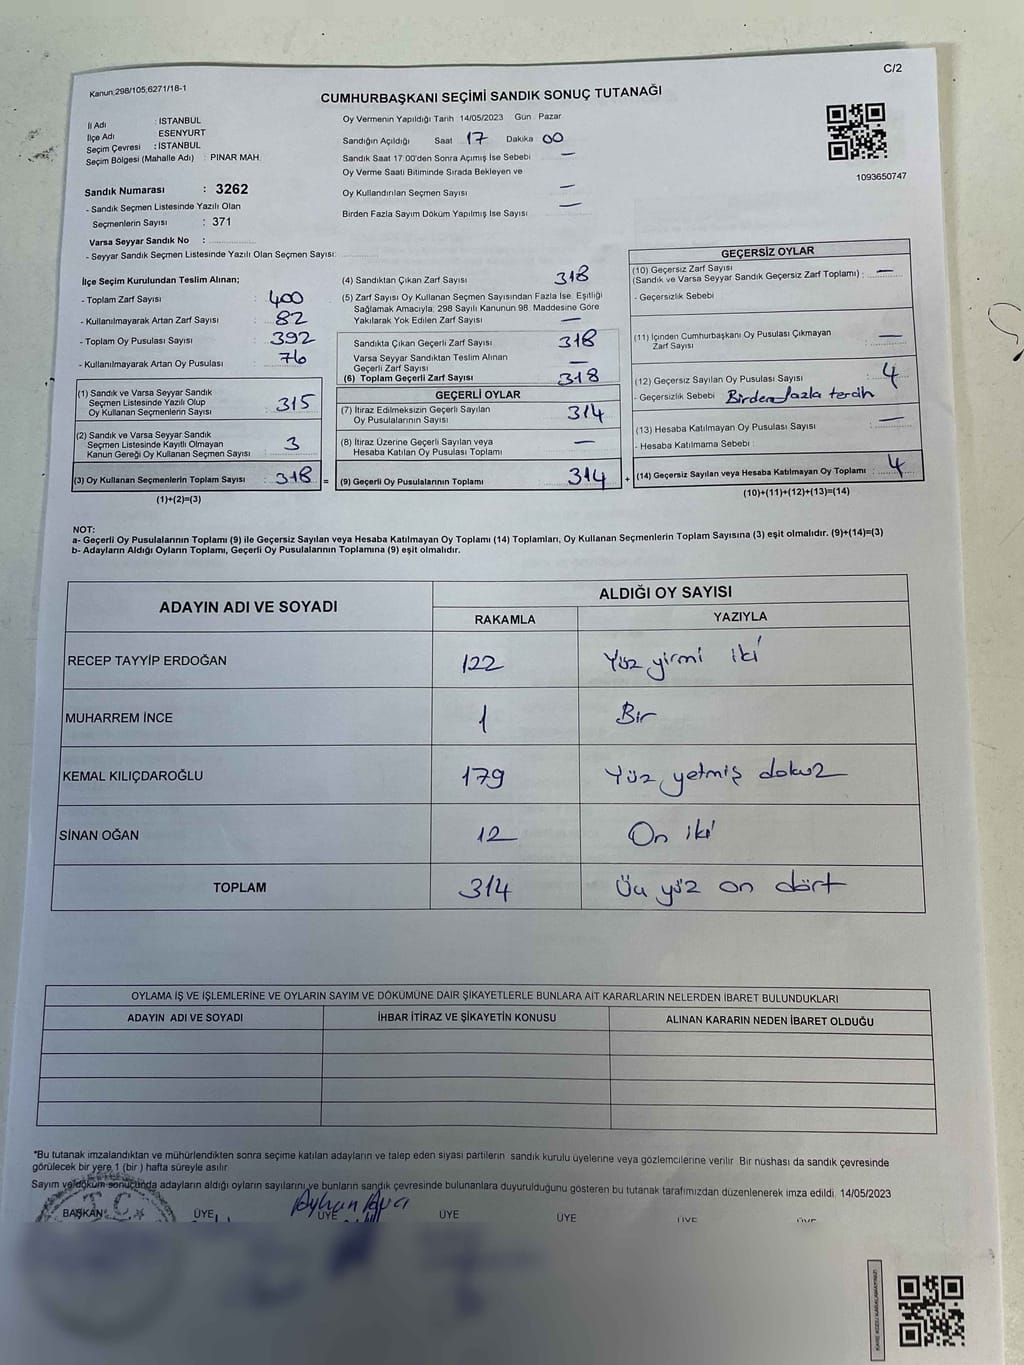 C/2
Kanun:298/105,6271/18-1
CUMHURBAŞKANI SEÇİMİ SANDIK SONUÇ TUTANAĞI
İl Adı : İSTANBUL
İlçe Adı : ESENYURT
Seçim Çevresi : İSTANBUL
Seçim Bölgesi (Mahalle Adı) : PINAR MAH.
Oy Vermenin Yapıldığı Tarih 14/05/2023 Gün Pazar
Sandığın Açıldığı Saat 17 Dakika 00
Sandık Saat 17:00'den Sonra Açımış İse Sebebi —
Oy Verme Saati Bitiminde Sırada Bekleyen ve
Oy Kullandırılan Seçmen Sayısı —
Birden Fazla Sayım Döküm Yapılmış İse Sayısı —
1093650747
Sandık Numarası : 3262
- Sandık Seçmen Listesinde Yazılı Olan
Seçmenlerin Sayısı : 371
Varsa Seyyar Sandık No :
- Seyyar Sandık Seçmen Listesinde Yazılı Olan Seçmen Sayısı:
İlçe Seçim Kurulundan Teslim Alınan;
- Toplam Zarf Sayısı : 400
- Kullanılmayarak Artan Zarf Sayısı : 82
- Toplam Oy Pusulası Sayısı : 392
- Kullanılmayarak Artan Oy Pusulası : 76
(1) Sandık ve Varsa Seyyar Sandık
Seçmen Listesinde Yazılı Olup
Oy Kullanan Seçmenlerin Sayısı : 315
(2) Sandık ve Varsa Seyyar Sandık
Seçmen Listesinde Kayıtlı Olmayan
Kanun Gereği Oy Kullanan Seçmen Sayısı : 3
(3) Oy Kullanan Seçmenlerin Toplam Sayısı : 318 =
(1)+(2)=(3)
(4) Sandıktan Çıkan Zarf Sayısı 318
(5) Zarf Sayısı Oy Kullanan Seçmen Sayısından Fazla İse, Eşitliği
Sağlamak Amacıyla, 298 Sayılı Kanunun 98. Maddesine Göre
Yakılarak Yok Edilen Zarf Sayısı —
Sandıkta Çıkan Geçerli Zarf Sayısı 318
Varsa Seyyar Sandıktan Teslim Alınan
Geçerli Zarf Sayısı —
(6) Toplam Geçerli Zarf Sayısı 318
GEÇERLİ OYLAR
(7) İtiraz Edilmeksizin Geçerli Sayılan
Oy Pusulalarının Sayısı 314
(8) İtiraz Üzerine Geçerli Sayılan veya
Hesaba Katılan Oy Pusulası Toplamı —
(9) Geçerli Oy Pusulalarının Toplamı 314 +
GEÇERSİZ OYLAR
(10) Geçersiz Zarf Sayısı
(Sandık ve Varsa Seyyar Sandık Geçersiz Zarf Toplamı) : —
- Geçersizlik Sebebi
(11) İçinden Cumhurbaşkanı Oy Pusulası Çıkmayan
Zarf Sayısı —
(12) Geçersiz Sayılan Oy Pusulası Sayısı : 4
- Geçersizlik Sebebi Birden fazla tercih
(13) Hesaba Katılmayan Oy Pusulası Sayısı : —
- Hesaba Katılmama Sebebi :
(14) Geçersiz Sayılan veya Hesaba Katılmayan Oy Toplamı : 4
(10)+(11)+(12)+(13)=(14)
NOT:
a- Geçerli Oy Pusulalarının Toplamı (9) ile Geçersiz Sayılan veya Hesaba Katılmayan Oy Toplamı (14) Toplamları, Oy Kullanan Seçmenlerin Toplam Sayısına (3) eşit olmalıdır. (9)+(14)=(3)
b- Adayların Aldığı Oyların Toplamı, Geçerli Oy Pusulalarının Toplamına (9) eşit olmalıdır.
ADAYIN ADI VE SOYADI
ALDIĞI OY SAYISI
RAKAMLA YAZIYLA
RECEP TAYYİP ERDOĞAN 122 Yüz yirmi iki
MUHARREM İNCE 1 Bir
KEMAL KILIÇDAROĞLU 179 Yüz yetmiş dokuz
SİNAN OĞAN 12 On iki
TOPLAM 314 Üç yüz on dört
OYLAMA İŞ VE İŞLEMLERİNE VE OYLARIN SAYIM VE DÖKÜMÜNE DAİR ŞİKAYETLERLE BUNLARA AİT KARARLARIN NELERDEN İBARET BULUNDUKLARI
ADAYIN ADI VE SOYADI İHBAR İTİRAZ VE ŞİKAYETİN KONUSU ALINAN KARARIN NEDEN İBARET OLDUĞU
*Bu tutanak imzalandıktan ve mühürlendikten sonra seçime katılan adayların ve talep eden siyasi partilerin sandık kurulu üyelerine veya gözlemcilerine verilir. Bir nüshası da sandık çevresinde
görülecek bir yere 1 (bir) hafta süreyle asılır.
Sayım ve döküm sonucunda adayların aldığı oyların sayılarını ve bunların sandık çevresinde bulunanlara duyurulduğunu gösteren bu tutanak tarafımızdan düzenlenerek imza edildi. 14/05/2023
T.C.
BAŞKAN ÜYE ÜYE ÜYE ÜYE ÜYE ÜYE